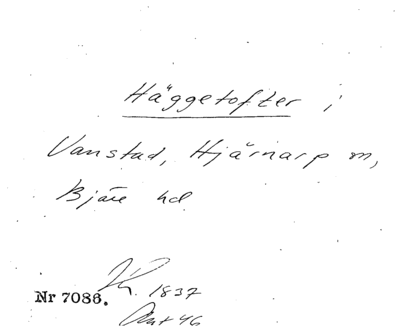 Häggetofter i
Vanstad, Hjärnarp sn,
Bjäre hd
Nr 7086.
1837
Akt 46